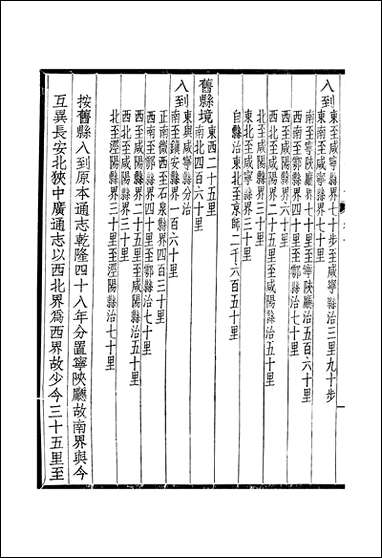 八到東至咸寧縣界七十步至咸寧縣治三里九十步
東南至咸寧縣界七十里
南至寧陝廳界七十里至寧陝廳治五百六十里
西南至鄠縣界四十里至鄠縣治七十里
西至咸陽縣界六十里
西北至咸陽縣界二十五里至咸陽縣治五十里
北至咸陽縣界三十里
東北至咸寧縣界三十里
自縣治東北至京師二千六百五十里
舊縣境東西二十五里
南北四百六十里
八到東與咸寧縣分治
南至鎮安縣界一百六十里
正南微西至石泉縣界四百三十里
西南至鄠縣界四十里至鄠縣治七十里
西至咸陽縣界二十五里至咸陽縣治五十里
西北至咸陽縣界三十里
北至涇陽縣界三十里至涇陽縣治七十里
按舊縣八到原本通志乾隆四十八年分置寧陝廳故南界與今
互異長安北狹中廣通志以西北界爲西界故少今三十五里至